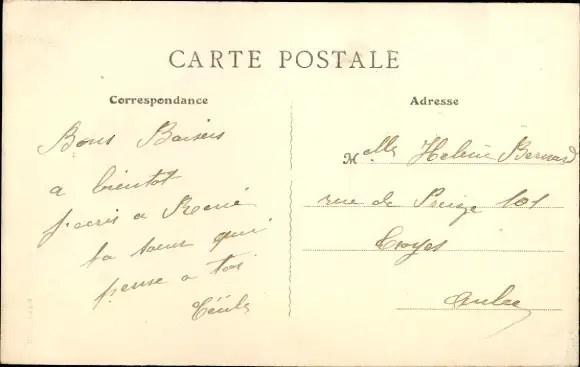 CARTE POSTALE
Correspondance
Bons Baisers
a bientot
j'ecris a René
ta soeur qui
pense a toi
Cécile
Adresse
Melle Helène Bernard
rue de Preize 101
Troyes
Aube